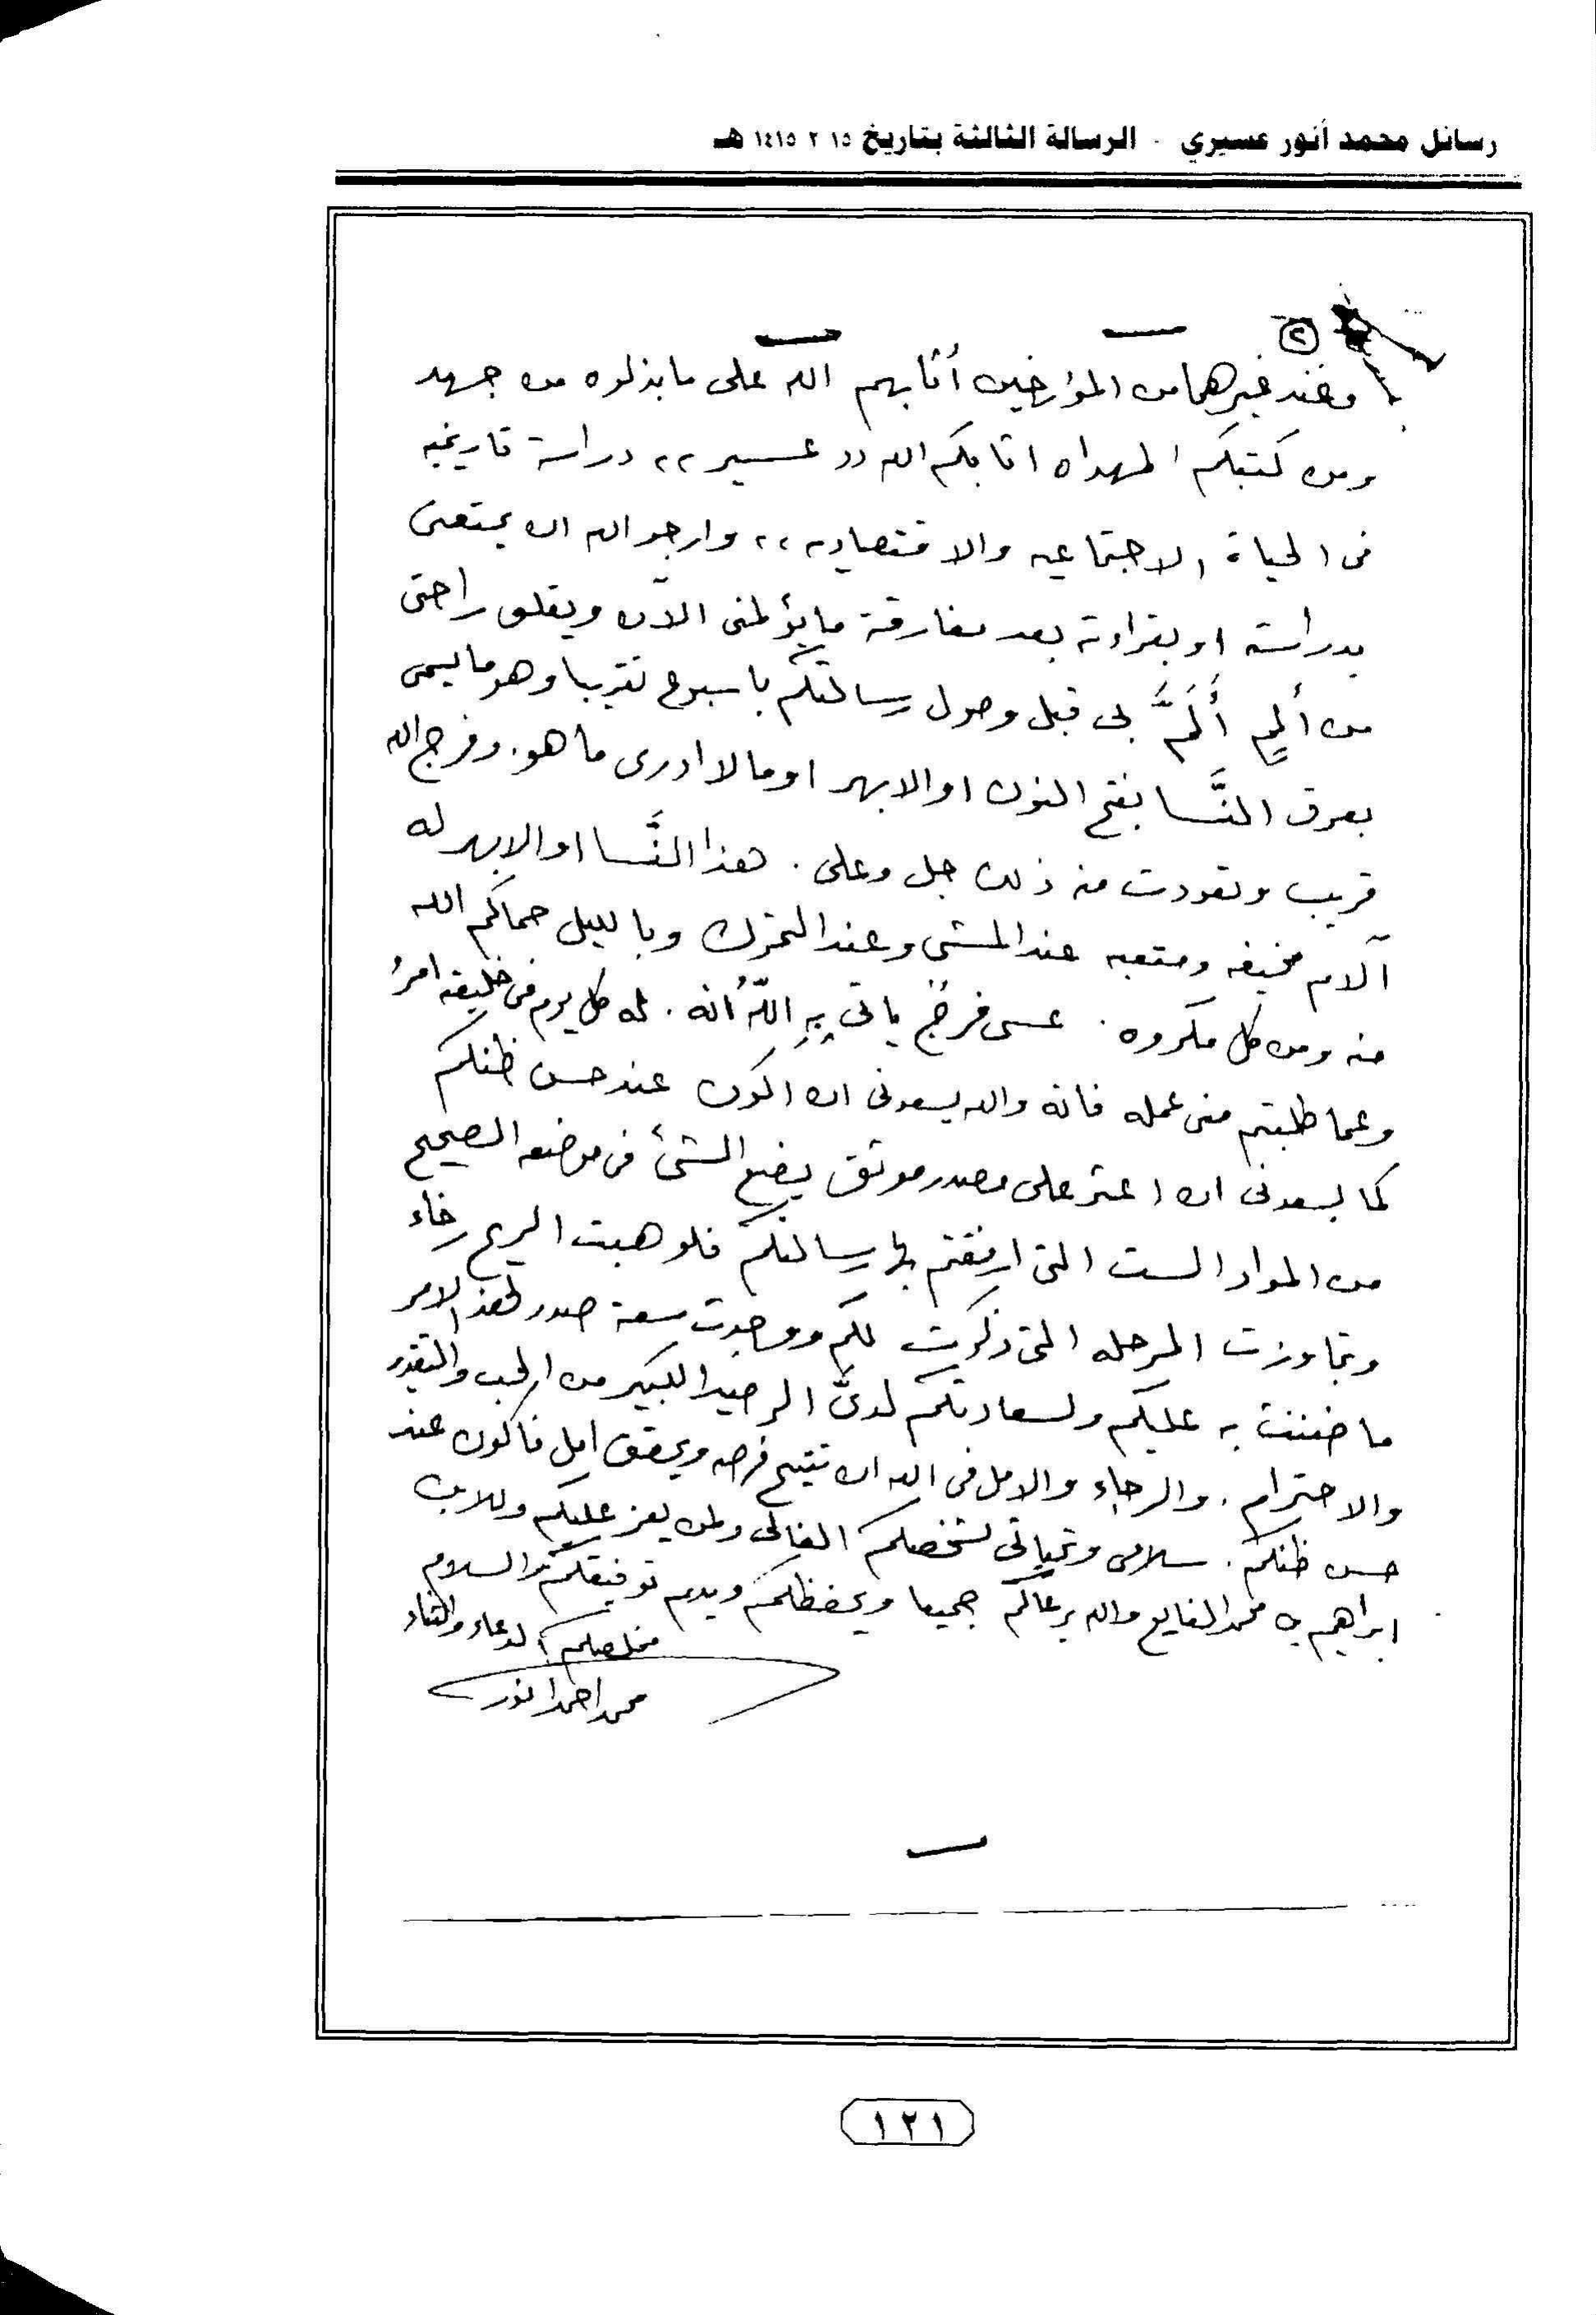 رسائل محمد أنور عسيري - الرسالة الثالثة بتاريخ ١٥ ٢ ١٤١٥ هـ
٢
وعند غيرهما من المؤرخين أثابهم الله على ما بذلوه من جهد
ومن كتبكم المهداه اثابكم الله ,, عسير ,, دراسة تاريخيه
فى الحياة الاجتماعيه والاقتصاديه ,, وارجو الله ان يمتعنى
بدراسته او بقراءته بعد مفارقة ما يؤلمنى الآن ويقلق راحتى
من ألمٍ أَلَمَّ بى قبل وصول رسالتكم باسبوع تقريبا وهو ما يسمى
بعرق النَّسا بفتح النون او الابهر او مالا ادرى ما هو. وفرج الله
قريب وتعودت منه ذلك جل وعلى . هذا النَّسا او الابهر له
آلام مخيفه ومتعبه عند المشى وعند التحرك وبالليل حماكم الله
منه ومن كل مكروه . عسى فرجٌ ياتى بِهِ اللّهُ انه . له كل يوم فى خليقته امرُ
وعما طلبتم منى عمله فانه والله يسعدنى ان اكون عند حسن ظنكم
كما يسعدنى ان اعثر على مصدر موثق يضع الشئ فى موضعه الصحيح
من المواد الست التى ارفقتم بها رسالتكم فلو هبت الريح رخاء
وتجاوزت المرحله التى ذكرت لكم ووجدت سعة صدر لهذا الامر
ما ضننت به عليكم ولسعادتكم لدىَّ الرصيد الكبير من الحب والتقدير
والاحترام . والرجاء والامل فى الله ان تتيح فرصه ويحقق امل فاكون عند
حسن ظنكم . سلامى وتحياتى لشخصكم الغالى ولمن يعز عليكم وللابن
ابراهيم بن محمد الفايع والله يرعاكم جميعا ويحفظكم ويديم توفيقكم والسلام
مخلصكم الدعاء والثناء
محمد احمد انور
١٢١